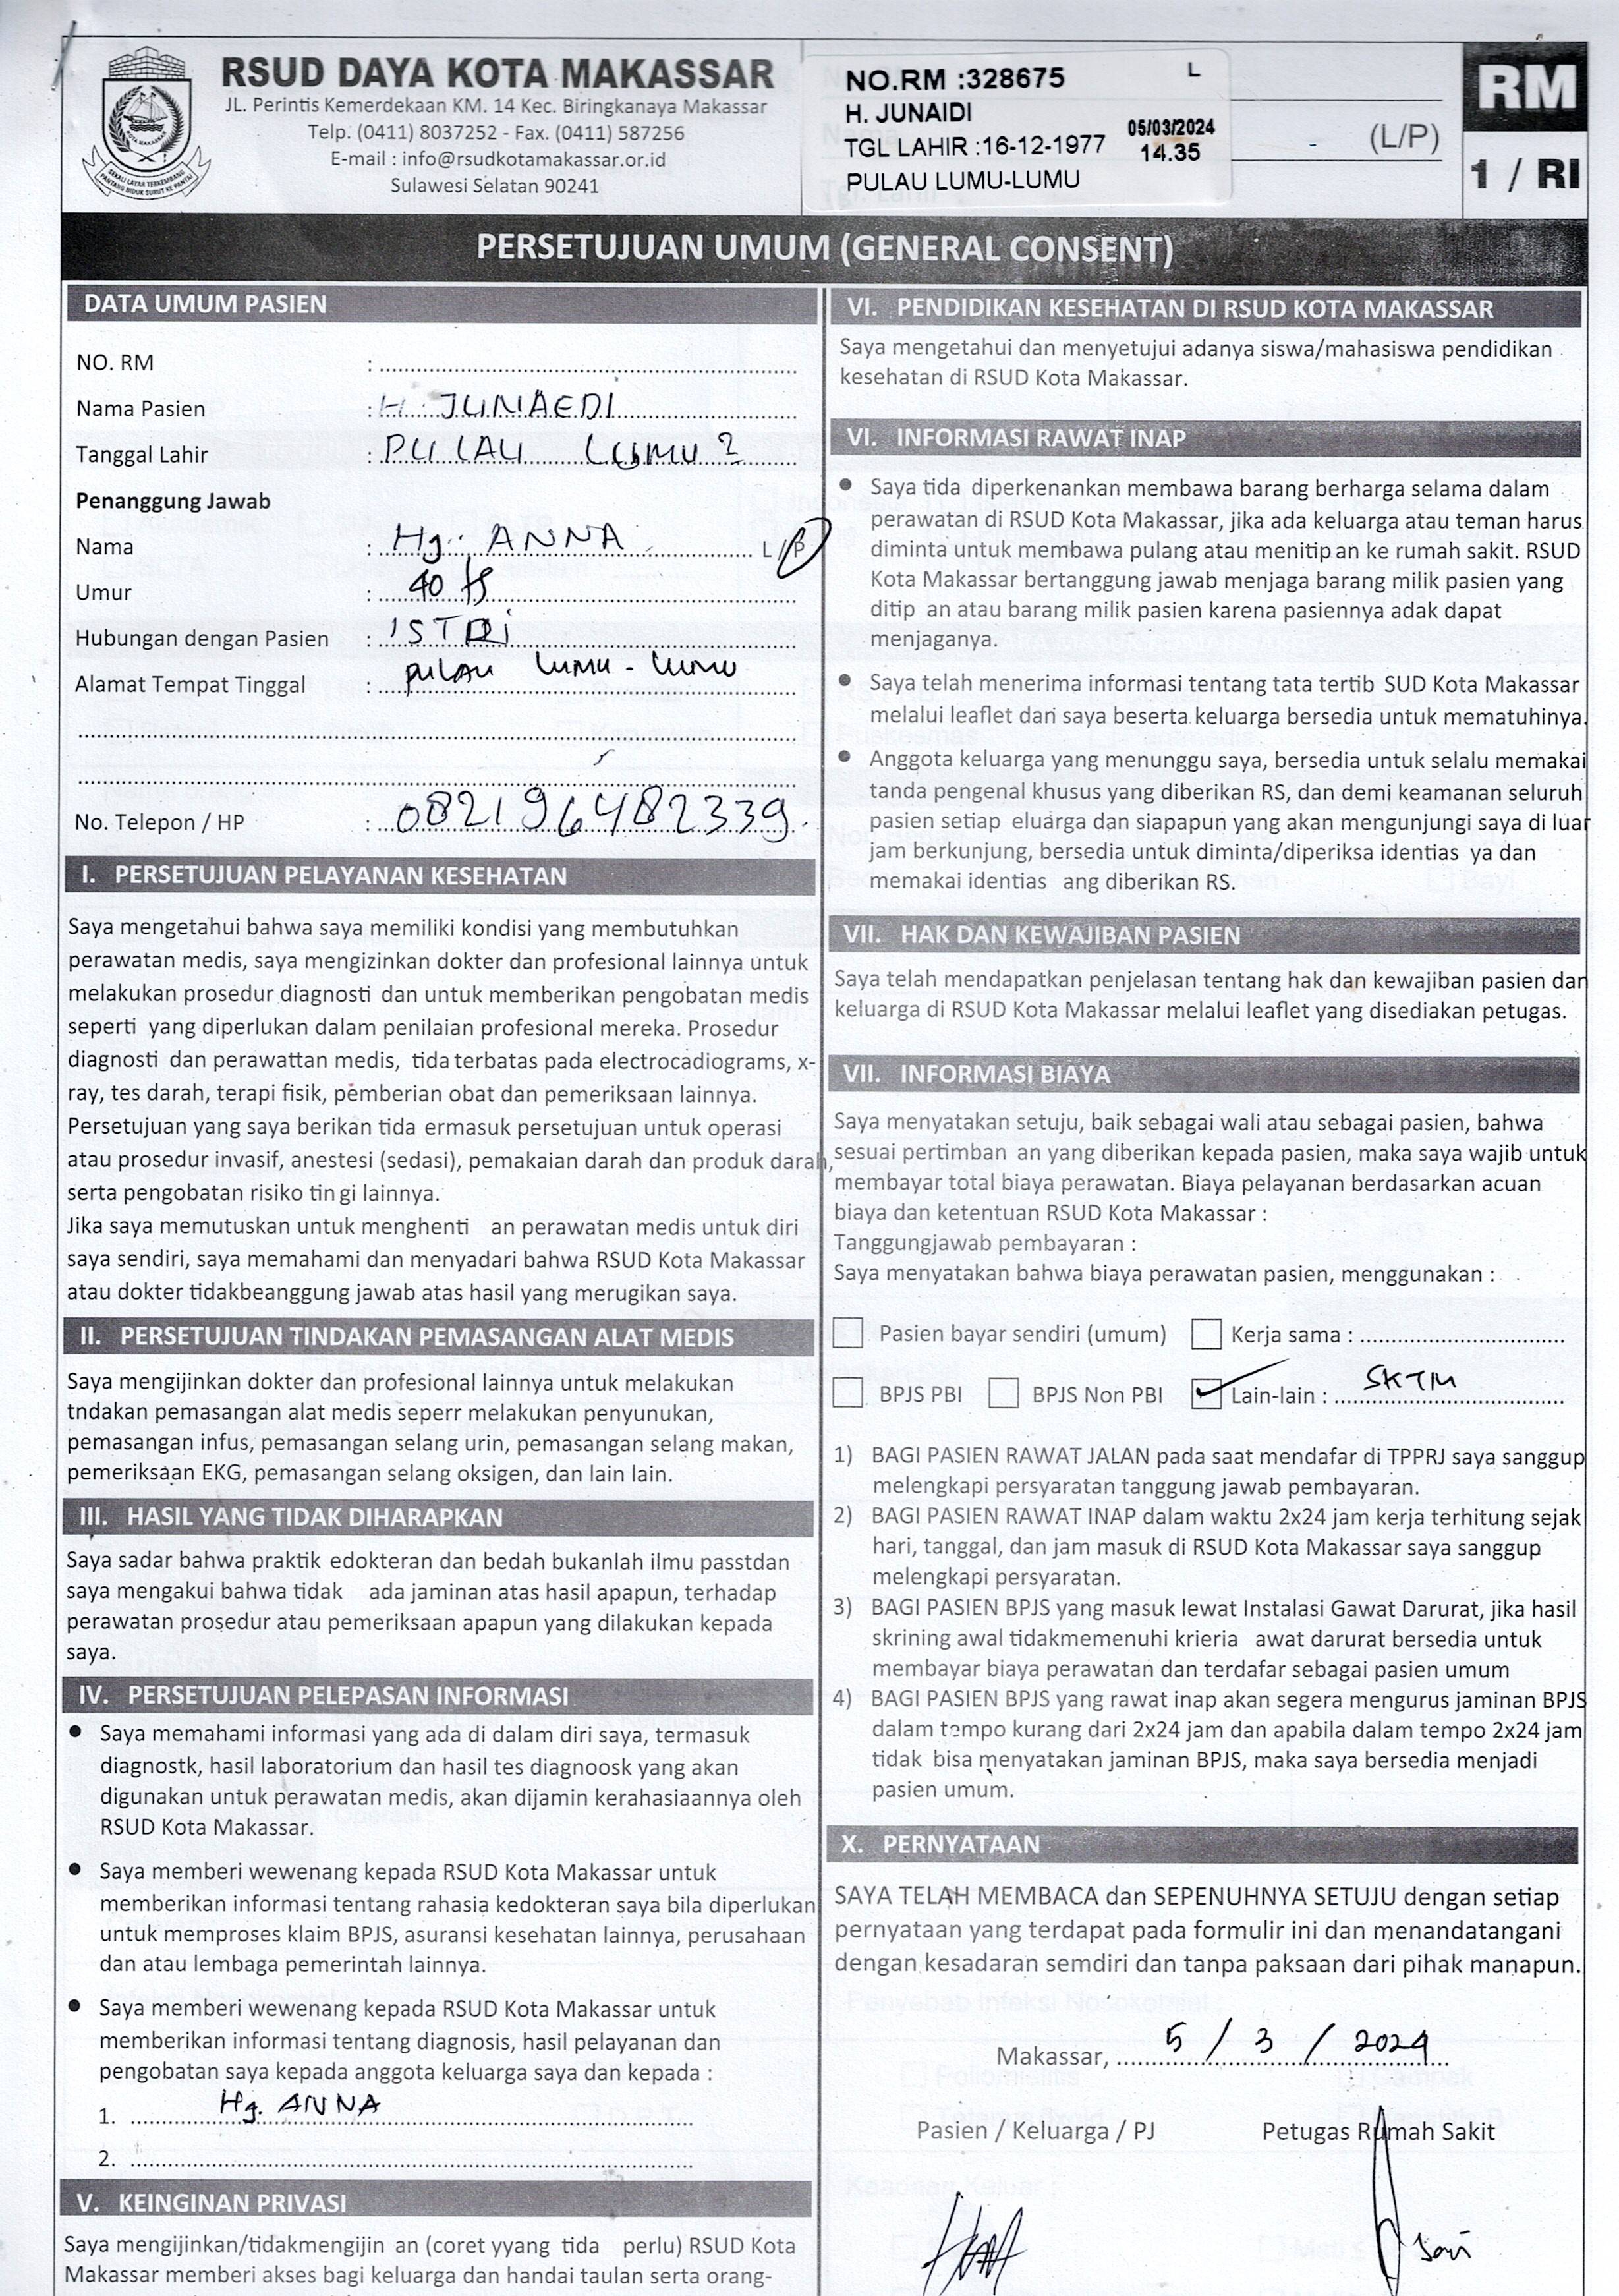 RSUD DAYA KOTA MAKASSAR
JL. Perintis Kemerdekaan KM. 14 Kec. Biringkanaya Makassar
Telp. (0411) 8037252 - Fax. (0411) 587256
E-mail : info@rsudkotamakassar.or.id
Sulawesi Selatan 90241
NO.RM :328675 L
H. JUNAIDI
TGL LAHIR :16-12-1977
05/03/2024
14.35
PULAU LUMU-LUMU
(L/P)
RM
1 / RI
PERSETUJUAN UMUM (GENERAL CONSENT)
DATA UMUM PASIEN
NO. RM :
Nama Pasien : H. JUNAEDI
Tanggal Lahir : PULAU LUMU2
Penanggung Jawab
Nama : Hj. ANNA L/P
Umur : 40
Hubungan dengan Pasien : ISTRI
Alamat Tempat Tinggal : PULAU LUMU-LUMU
No. Telepon / HP : 082196482339
I. PERSETUJUAN PELAYANAN KESEHATAN
Saya mengetahui bahwa saya memiliki kondisi yang membutuhkan
perawatan medis, saya mengizinkan dokter dan profesional lainnya untuk
melakukan prosedur diagnosti dan untuk memberikan pengobatan medis
seperti yang diperlukan dalam penilaian profesional mereka. Prosedur
diagnosti dan perawattan medis, tida terbatas pada electrocadiograms, x-
ray, tes darah, terapi fisik, pemberian obat dan pemeriksaan lainnya.
Persetujuan yang saya berikan tida ermasuk persetujuan untuk operasi
atau prosedur invasif, anestesi (sedasi), pemakaian darah dan produk darah,
serta pengobatan risiko tin gi lainnya.
Jika saya memutuskan untuk menghenti an perawatan medis untuk diri
saya sendiri, saya memahami dan menyadari bahwa RSUD Kota Makassar
atau dokter tidakbeanggung jawab atas hasil yang merugikan saya.
II. PERSETUJUAN TINDAKAN PEMASANGAN ALAT MEDIS
Saya mengijinkan dokter dan profesional lainnya untuk melakukan
tndakan pemasangan alat medis seperr melakukan penyunukan,
pemasangan infus, pemasangan selang urin, pemasangan selang makan,
pemeriksaan EKG, pemasangan selang oksigen, dan lain lain.
III. HASIL YANG TIDAK DIHARAPKAN
Saya sadar bahwa praktik edokteran dan bedah bukanlah ilmu passtdan
saya mengakui bahwa tidak ada jaminan atas hasil apapun, terhadap
perawatan prosedur atau pemeriksaan apapun yang dilakukan kepada
saya.
IV. PERSETUJUAN PELEPASAN INFORMASI
● Saya memahami informasi yang ada di dalam diri saya, termasuk
diagnostk, hasil laboratorium dan hasil tes diagnoosk yang akan
digunakan untuk perawatan medis, akan dijamin kerahasiaannya oleh
RSUD Kota Makassar.
● Saya memberi wewenang kepada RSUD Kota Makassar untuk
memberikan informasi tentang rahasia kedokteran saya bila diperlukan
untuk memproses klaim BPJS, asuransi kesehatan lainnya, perusahaan
dan atau lembaga pemerintah lainnya.
● Saya memberi wewenang kepada RSUD Kota Makassar untuk
memberikan informasi tentang diagnosis, hasil pelayanan dan
pengobatan saya kepada anggota keluarga saya dan kepada :
1. Hj. ANNA
2.
V. KEINGINAN PRIVASI
Saya mengijinkan/tidakmengijin an (coret yyang tida perlu) RSUD Kota
Makassar memberi akses bagi keluarga dan handai taulan serta orang-
VI. PENDIDIKAN KESEHATAN DI RSUD KOTA MAKASSAR
Saya mengetahui dan menyetujui adanya siswa/mahasiswa pendidikan
kesehatan di RSUD Kota Makassar.
VI. INFORMASI RAWAT INAP
● Saya tida diperkenankan membawa barang berharga selama dalam
perawatan di RSUD Kota Makassar, jika ada keluarga atau teman harus
diminta untuk membawa pulang atau menitip an ke rumah sakit. RSUD
Kota Makassar bertanggung jawab menjaga barang milik pasien yang
ditip an atau barang milik pasien karena pasiennya adak dapat
menjaganya.
● Saya telah menerima informasi tentang tata tertib SUD Kota Makassar
melalui leaflet dari saya beserta keluarga bersedia untuk mematuhinya.
● Anggota keluarga yang menunggu saya, bersedia untuk selalu memakai
tanda pengenal khusus yang diberikan RS, dan demi keamanan seluruh
pasien setiap eluarga dan siapapun yang akan mengunjungi saya di luar
jam berkunjung, bersedia untuk diminta/diperiksa identias ya dan
memakai identias ang diberikan RS.
VII. HAK DAN KEWAJIBAN PASIEN
Saya telah mendapatkan penjelasan tentang hak dan kewajiban pasien dan
keluarga di RSUD Kota Makassar melalui leaflet yang disediakan petugas.
VII. INFORMASI BIAYA
Saya menyatakan setuju, baik sebagai wali atau sebagai pasien, bahwa
sesuai pertimban an yang diberikan kepada pasien, maka saya wajib untuk
membayar total biaya perawatan. Biaya pelayanan berdasarkan acuan
biaya dan ketentuan RSUD Kota Makassar :
Tanggungjawab pembayaran :
Saya menyatakan bahwa biaya perawatan pasien, menggunakan :
Pasien bayar sendiri (umum) Kerja sama :
BPJS PBI BPJS Non PBI ✓ Lain-lain : SKTM
1) BAGI PASIEN RAWAT JALAN pada saat mendafar di TPPRJ saya sanggup
melengkapi persyaratan tanggung jawab pembayaran.
2) BAGI PASIEN RAWAT INAP dalam waktu 2x24 jam kerja terhitung sejak
hari, tanggal, dan jam masuk di RSUD Kota Makassar saya sanggup
melengkapi persyaratan.
3) BAGI PASIEN BPJS yang masuk lewat Instalasi Gawat Darurat, jika hasil
skrining awal tidakmemenuhi krieria awat darurat bersedia untuk
membayar biaya perawatan dan terdafar sebagai pasien umum
4) BAGI PASIEN BPJS yang rawat inap akan segera mengurus jaminan BPJS
dalam tempo kurang dari 2x24 jam dan apabila dalam tempo 2x24 jam
tidak bisa menyatakan jaminan BPJS, maka saya bersedia menjadi
pasien umum.
X. PERNYATAAN
SAYA TELAH MEMBACA dan SEPENUHNYA SETUJU dengan setiap
pernyataan yang terdapat pada formulir ini dan menandatangani
dengan kesadaran semdiri dan tanpa paksaan dari pihak manapun.
Makassar, 5 / 3 / 2024
Pasien / Keluarga / PJ Petugas Rumah Sakit